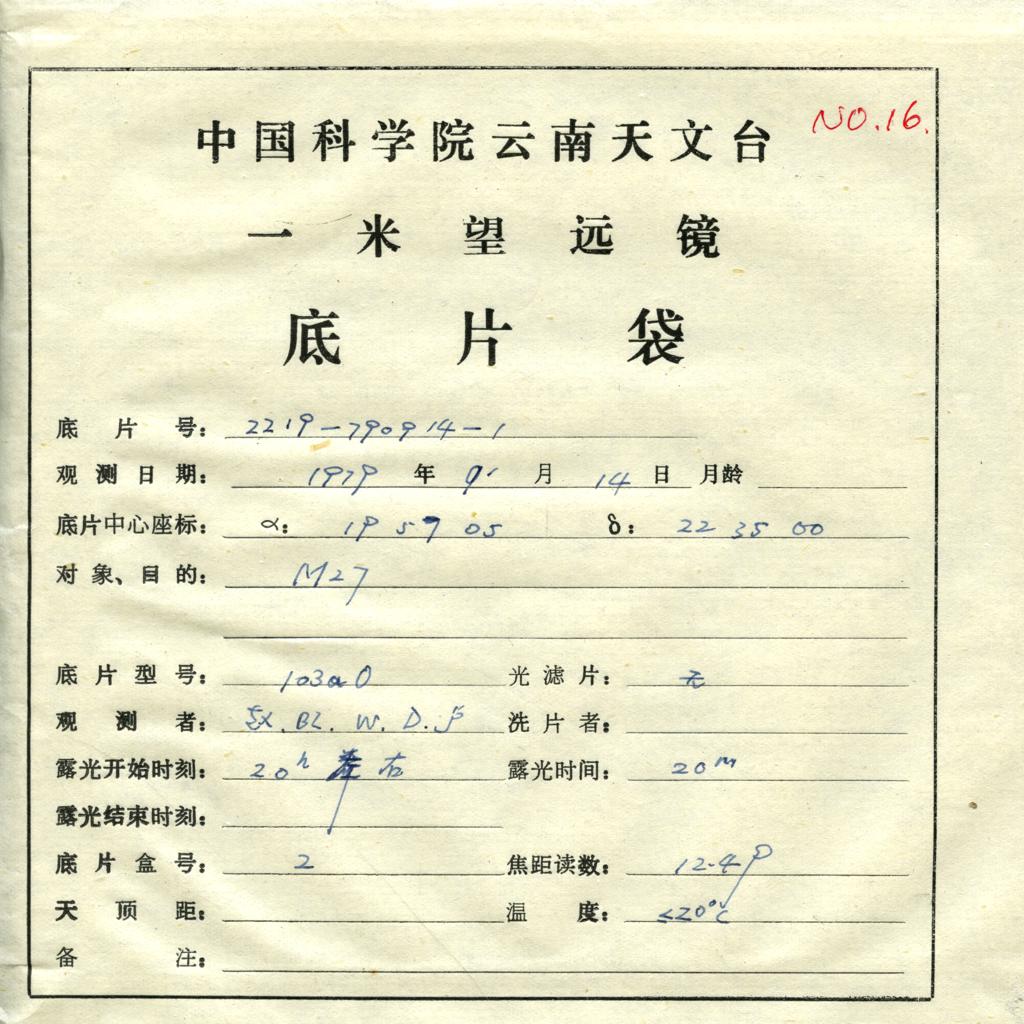 NO.16.
中国科学院云南天文台
一米望远镜
底片袋
底片号: 2219-790914-1
观测日期: 1979 年 9 月 14 日 月龄
底片中心座标: α: 19 57 05 δ: 22 35 00
对象、目的: M27
底片型号: 103aO 光滤片: 无
观测者: BZ. W. D. 洗片者:
露光开始时刻: 20h 左右 露光时间: 20m
露光结束时刻:
底片盒号: 2 焦距读数: 12.49
天顶距: 温度: ≤20°C
备注: